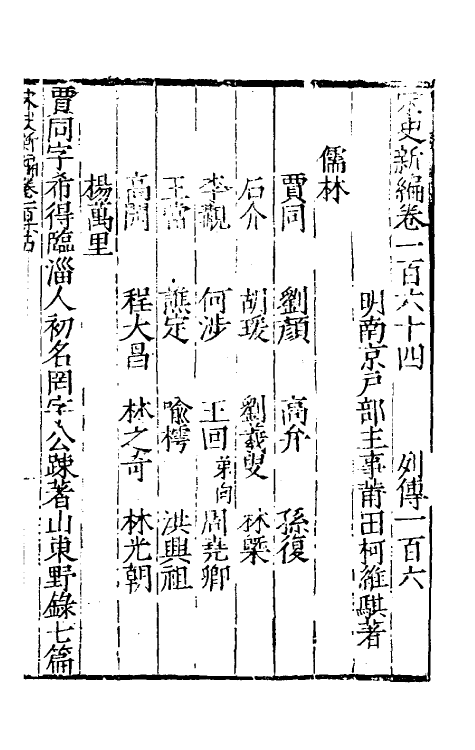 宋史新編卷一百六十四　列傳一百六
明南京戶部主事莆田柯維騏著
儒林
賈同　劉顏　高弁　孫復
石介　胡瑗　劉羲叟　林槩
李覯　何涉　王回弟向　周堯卿
王當　譙定　喻樗　洪興祖
高閌　程大昌　林之奇　林光朝
楊萬里
賈同字希得臨淄人初名罔字公疎著山東野錄七篇
宋史新編卷一百六十四